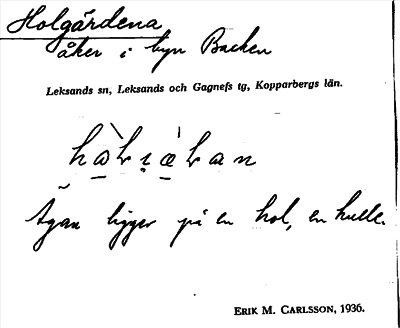 Holgärdena
åker i byn Backen
Leksands sn, Leksands och Gagnefs tg, Kopparbergs län.
Ägan ligger på en hol, en kulle.
ERIK M. CARLSSON, 1936.